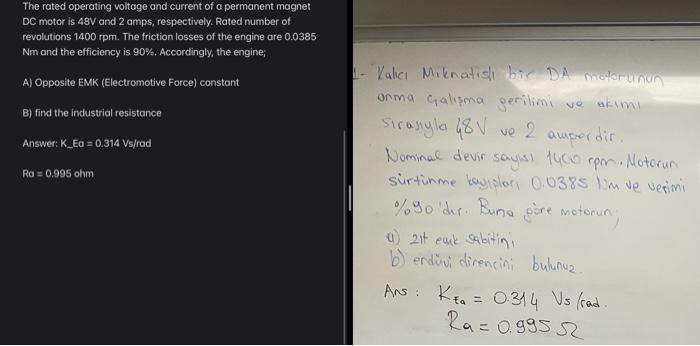 The rated operating voltage and current of a permanent magnet
DC motor is 48V and 2 amps, respectively. Rated number of
revolutions 1400 rpm. The friction losses of the engine are 0.0385
Nm and the efficiency is 90%. Accordingly, the engine;
A) Opposite EMK (Electromotive Force) constant
B) find the industrial resistance
Answer: K_Ea = 0.314 Vs/rad
Ra = 0.995 ohm
1- Kalıcı Mıknatıslı bir DA motorunun
anma çalışma gerilimi ve akımı
sırasıyla 48V ve 2 amperdir.
Nominal devir sayısı 1400 rpm. Motorun
sürtünme kayıpları 0.0385 Nm ve verimi
%90'dır. Buna göre motorun;
a) zıt emk sabitini
b) endüvi direncini bulunuz.
Ans : K_Ea = 0.314 Vs/rad.
Ra = 0.995 Ω